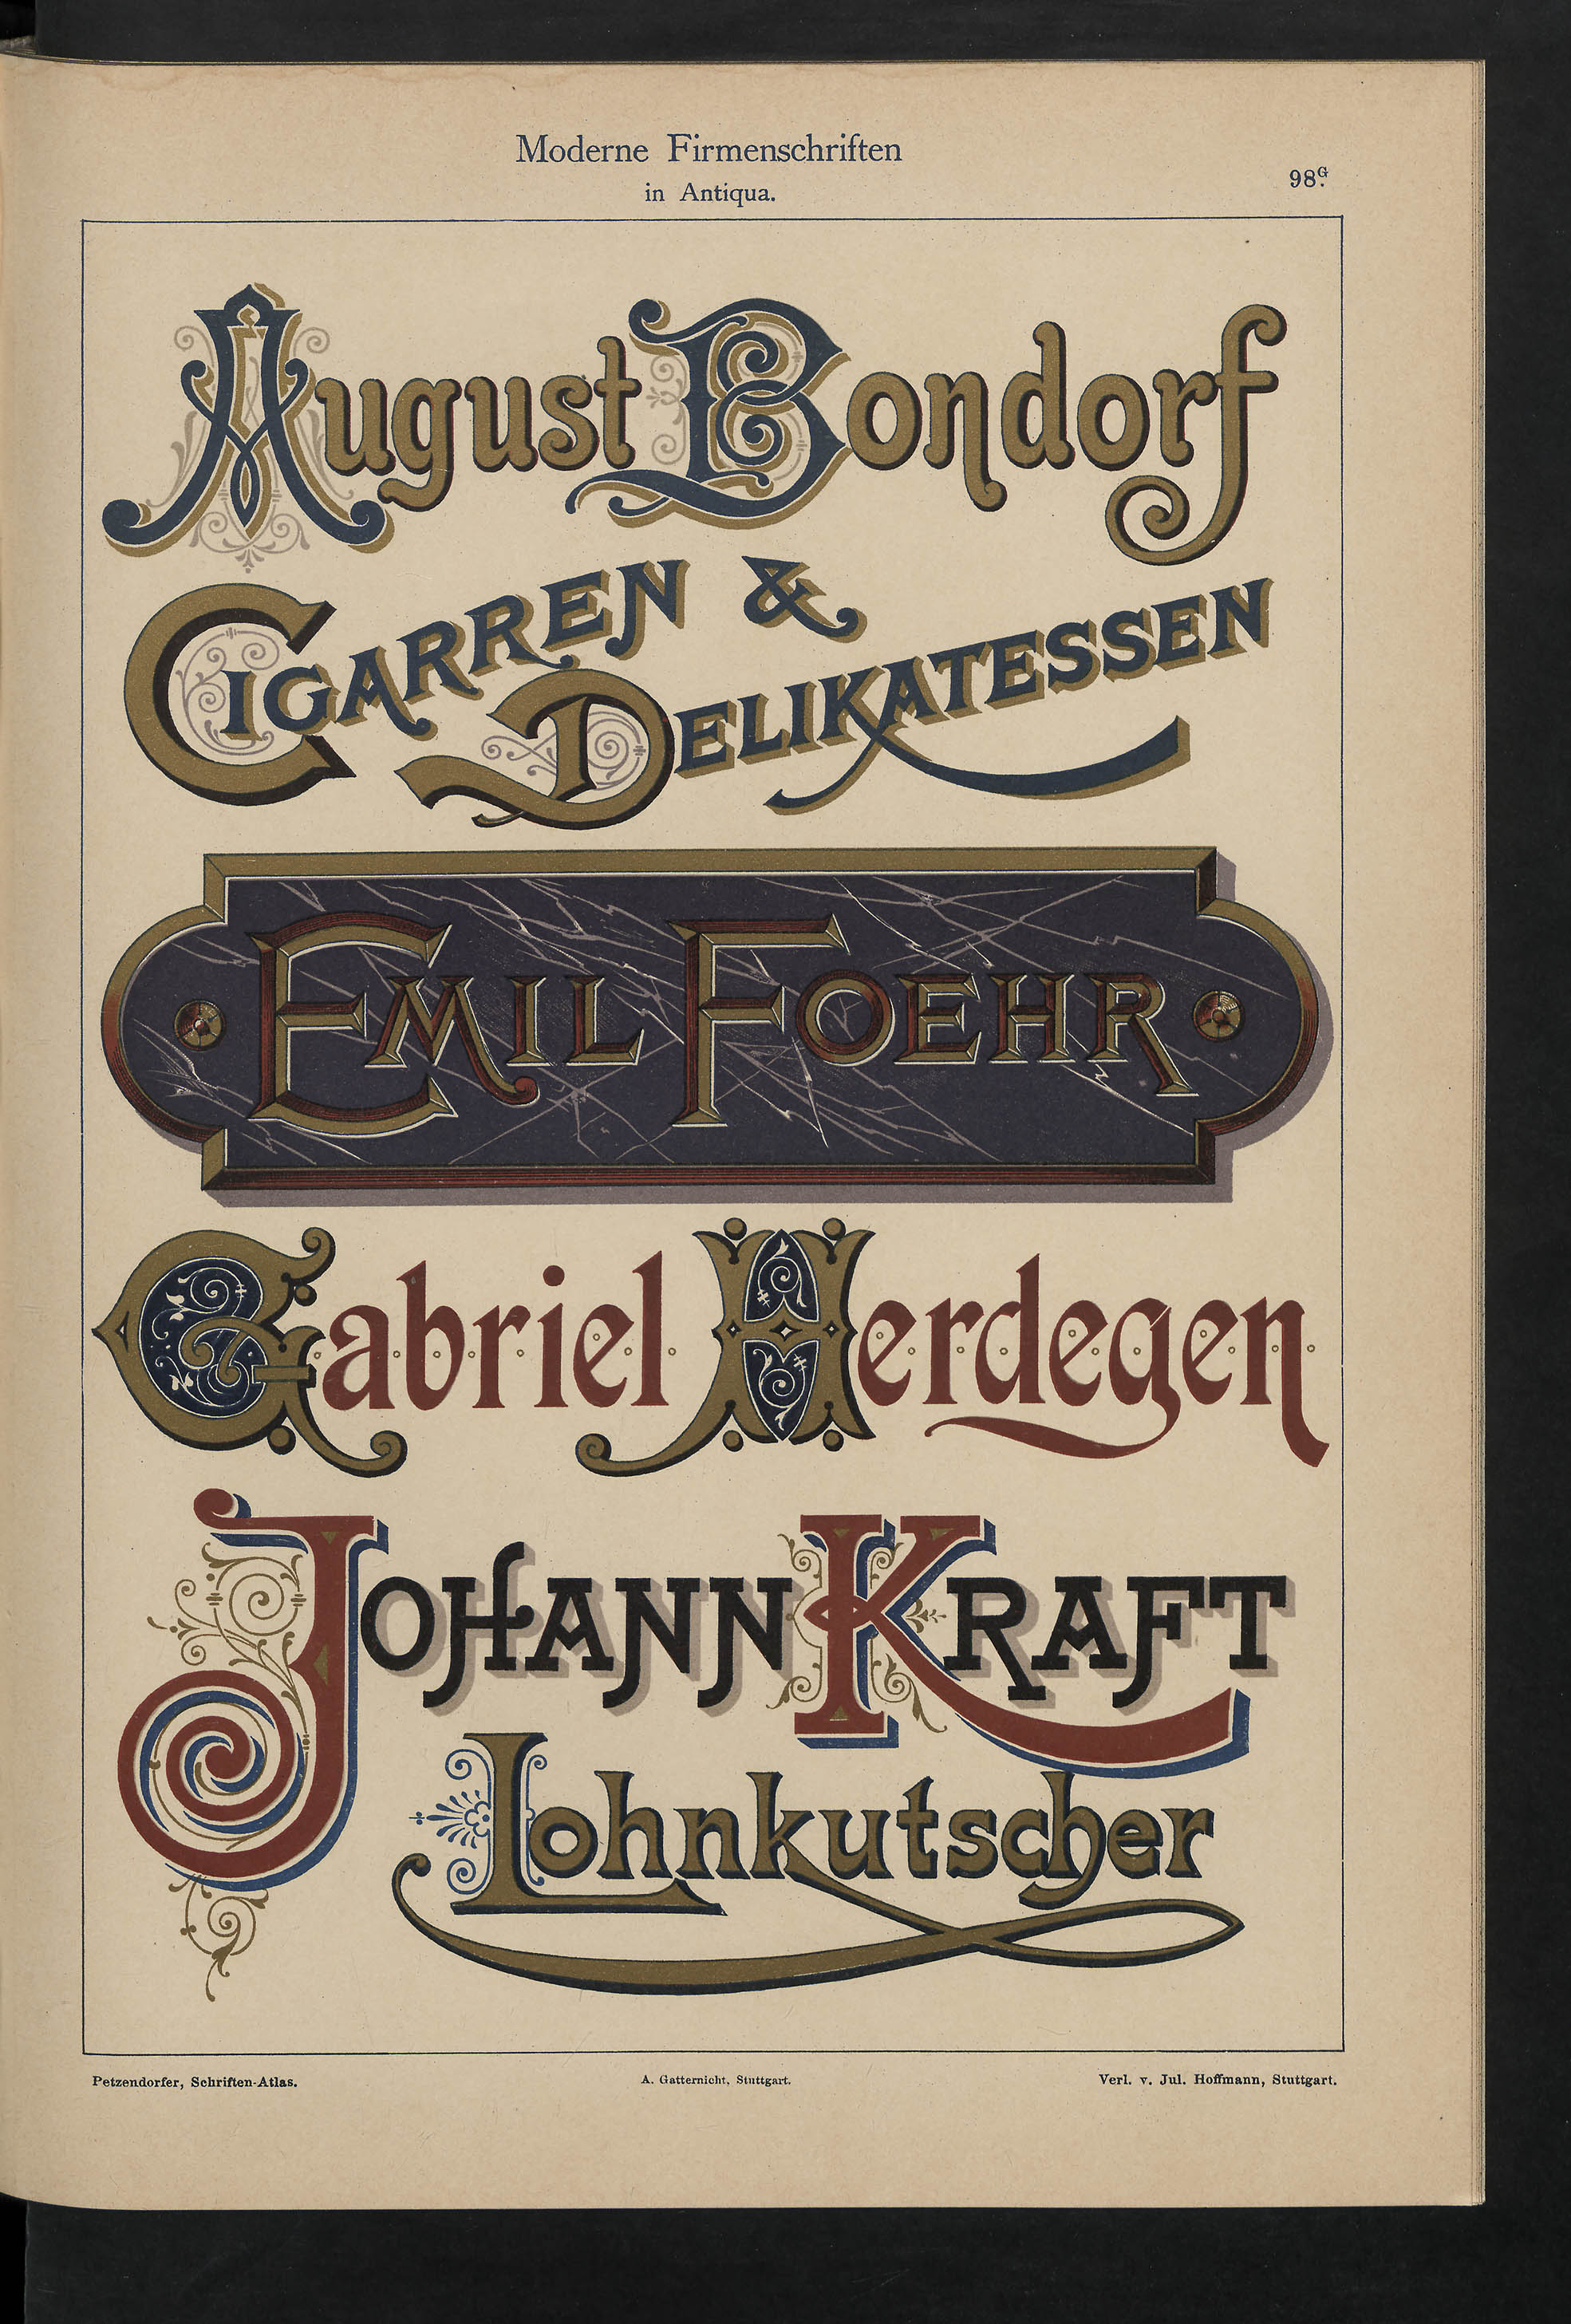 Moderne Firmenschriften
in Antiqua.
98G.
August Bondorf
CIGARREN &
DELIKATESSEN
EMIL FOEHR
Gabriel Herdegen
JOHANN KRAFT
Lohnkutscher
Petzendorfer, Schriften-Atlas.
A. Gatternicht, Stuttgart.
Verl. v. Jul. Hoffmann, Stuttgart.